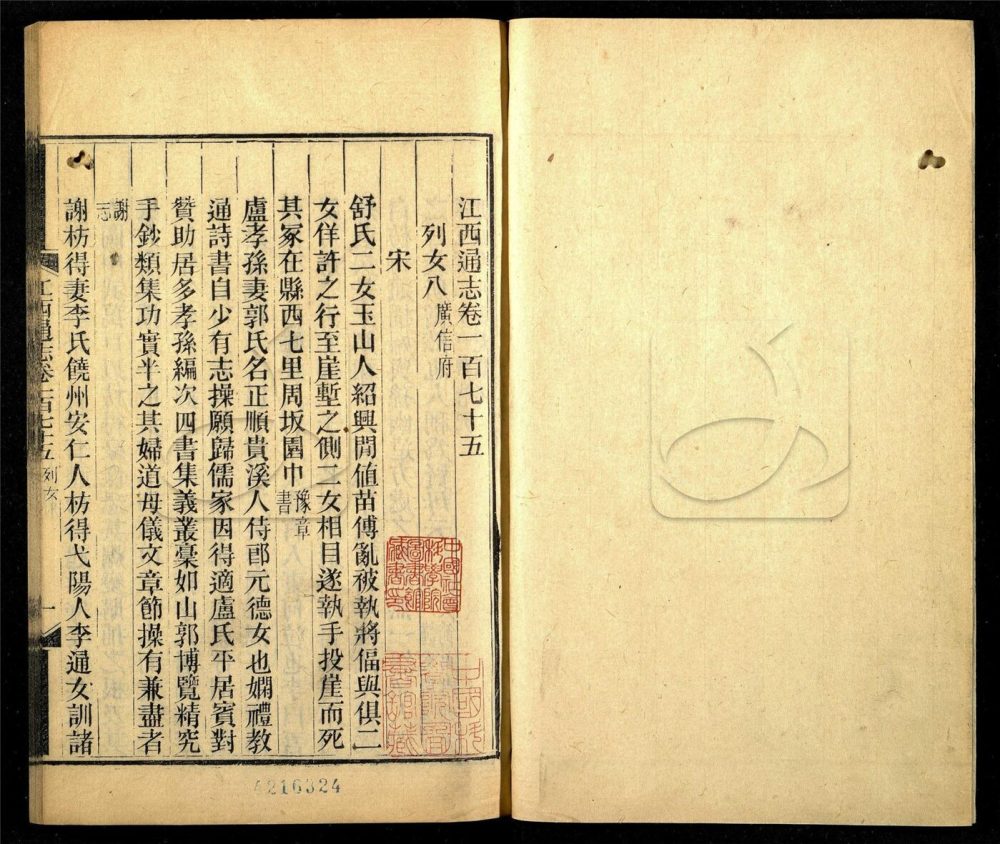 江西通志卷一百七十五
列女八廣信府
宋
舒氏二女玉山人紹興閒值苗傅亂被執將偪與俱二
女佯許之行至崖塹之側二女相目遂執手投崖而死
其冢在縣西七里周坂園中豫章書
盧孝孫妻郭氏名正順貴溪人侍郎元德女也嫻禮教
通詩書自少有志操願歸儒家因得適盧氏平居賓對
贊助居多孝孫編次四書集義叢稾如山郭博覽精究
手鈔類集功實半之其婦道母儀文章節操有兼盡者
謝志
謝枋得妻李氏饒州安仁人枋得弋陽人李通女訓諸
江西通志卷一百七十五 列女 一
中國社會科學院圖書館藏書印
4216324